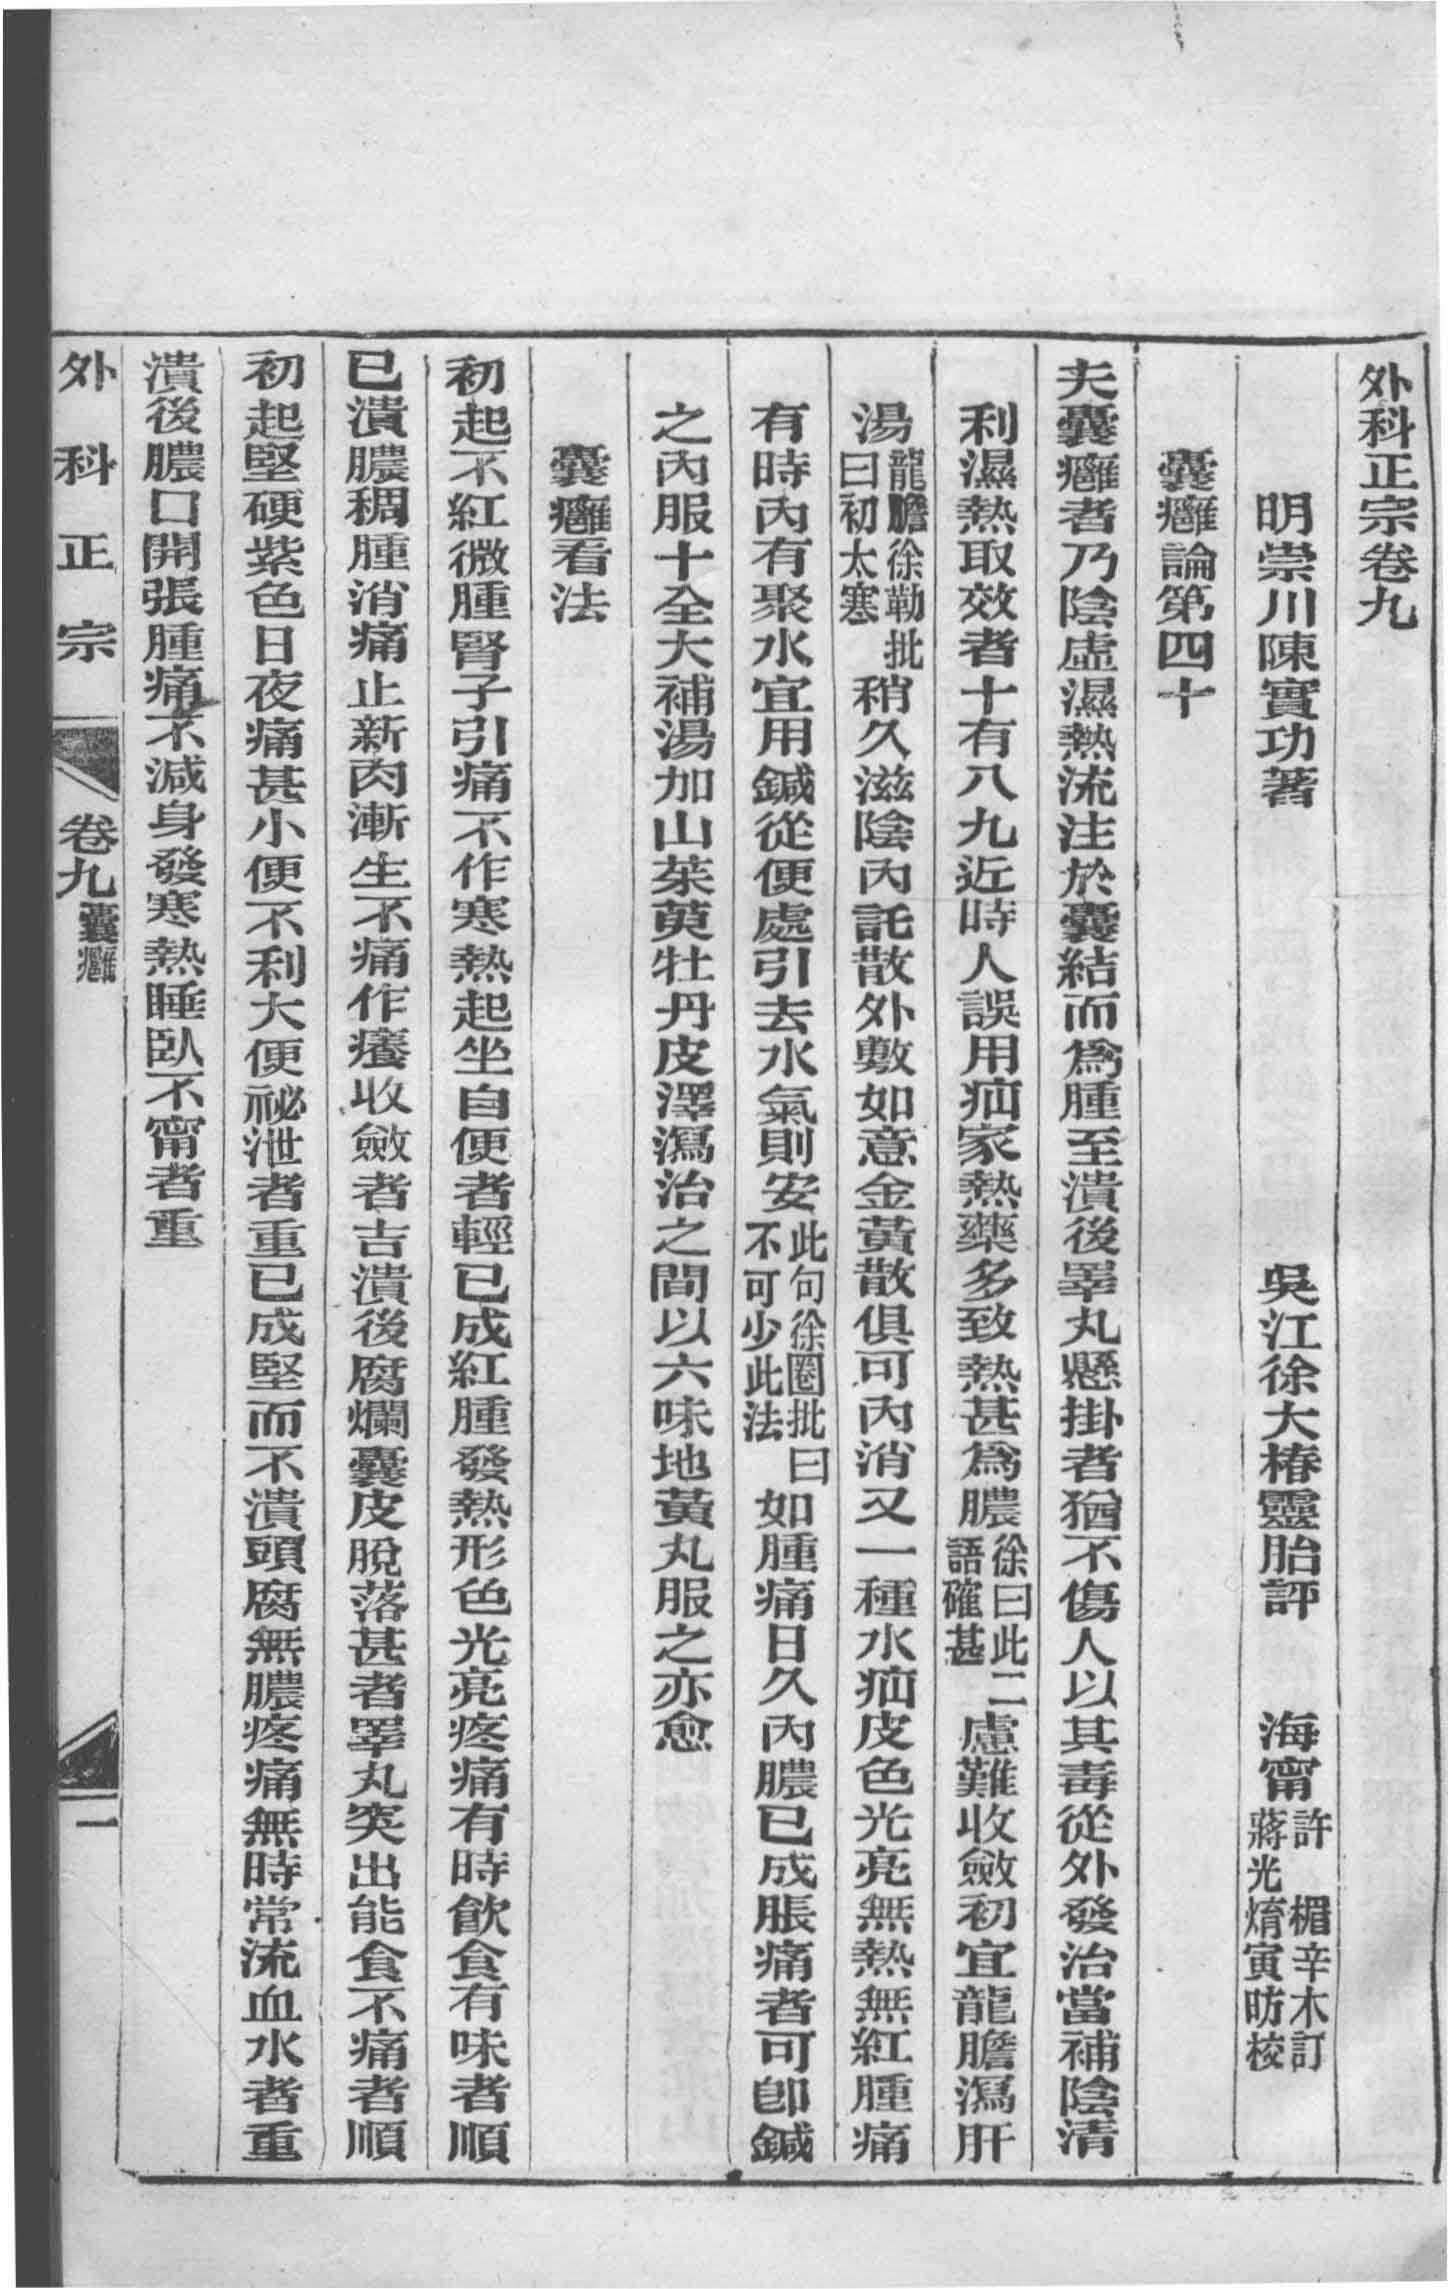 外科正宗卷九
明崇川陳實功著　吳江徐大椿靈胎評　海甯許　楣辛木訂蔣光焴寅昉校
囊癰論第四十
夫囊癰者乃陰虛濕熱流注於囊結而爲腫至潰後睪丸懸掛者猶不傷人以其毒從外發治當補陰清
利濕熱取效者十有八九近時人誤用疝家熱藥多致熱甚爲膿徐曰此二語確甚慮難收斂初宜龍膽瀉肝
湯龍膽徐勒批曰初太寒稍久滋陰內託散外敷如意金黃散俱可內消又一種水疝皮色光亮無熱無紅腫痛
有時內有聚水宜用鍼從便處引去水氣則安此句徐圈批曰不可少此法如腫痛日久內膿已成脹痛者可卽鍼
之內服十全大補湯加山茱萸牡丹皮澤瀉治之間以六味地黃丸服之亦愈
囊癰看法
初起不紅微腫腎子引痛不作寒熱起坐自便者輕已成紅腫發熱形色光亮疼痛有時飲食有味者順
已潰膿稠腫消痛止新肉漸生不痛作癢收斂者吉潰後腐爛囊皮脫落甚者睪丸突出能食不痛者順
初起堅硬紫色日夜痛甚小便不利大便祕泄者重已成堅而不潰頭腐無膿疼痛無時常流血水者重
潰後膿口開張腫痛不減身發寒熱睡臥不甯者重
外科正宗　卷九囊癰　一